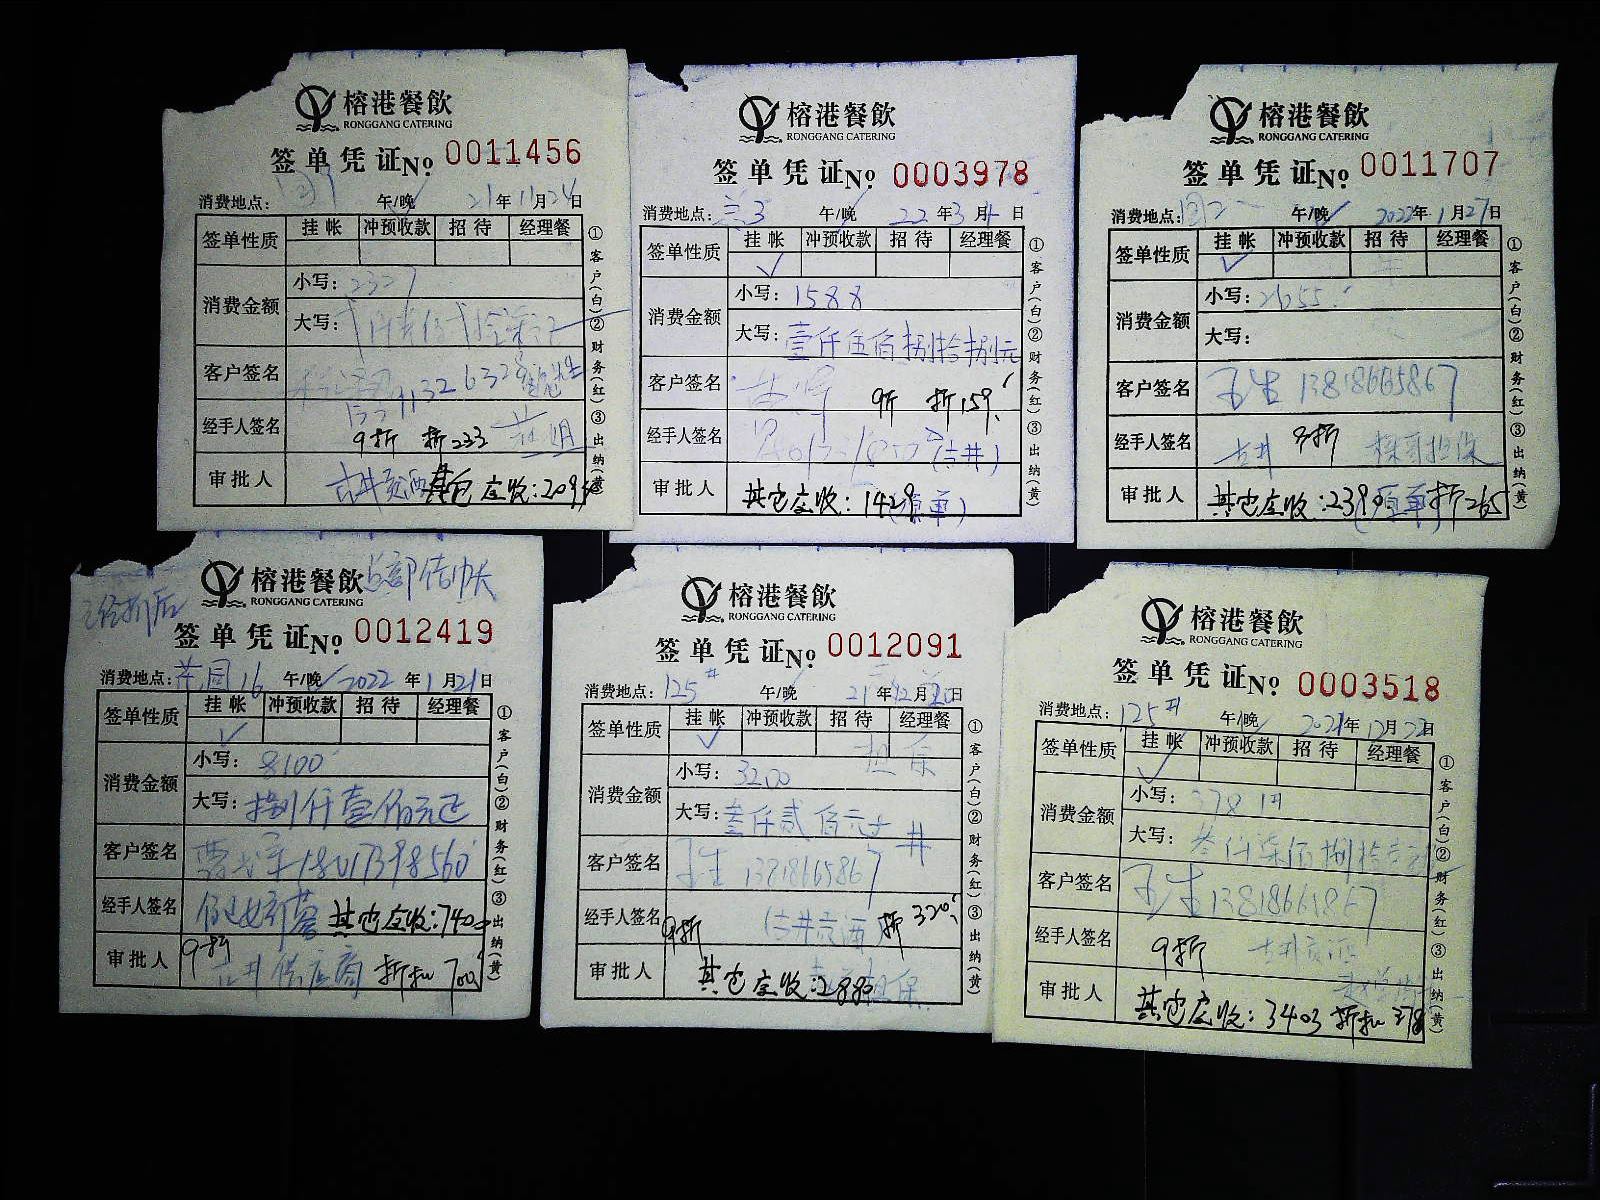 榕港餐飲
RONGGANG CATERING
签单凭证No. 0011456
消费地点: 午/晚 21年11月24日
签单性质 挂帐 冲预收款 招待 经理餐
消费金额 小写: 2327
大写:
客户签名
经手人签名 9折 折233
审批人 其它应收:209
①客户(白)②财务(红)③出纳(黄)
榕港餐飲
RONGGANG CATERING
签单凭证No. 0003978
消费地点: 午/晚 22年3月 日
签单性质 挂帐 冲预收款 招待 经理餐
✓
消费金额 小写: 1588
大写: 壹仟伍佰捌拾捌元
客户签名 9折 折159
经手人签名 (古井)
审批人 其它应收: 1429 (原单)
①客户(白)②财务(红)③出纳(黄)
榕港餐飲
RONGGANG CATERING
签单凭证No. 0011707
消费地点: 午/晚 2022年1月27日
签单性质 挂帐 冲预收款 招待 经理餐
✓
消费金额 小写: 2655
大写:
客户签名 王生 13818665867
经手人签名 古井 9折 担保
审批人 其它应收:2390 (原单) 折265
①客户(白)②财务(红)③出纳(黄)
已经折后 总部结帐
榕港餐飲
RONGGANG CATERING
签单凭证No. 0012419
消费地点: 16 午/晚 2022年1月21日
签单性质 挂帐 冲预收款 招待 经理餐
✓
消费金额 小写: 8100
大写: 捌仟壹佰元正
客户签名 18017398560
经手人签名 其它应收:7400
审批人 9折 古井供应商 折扣700
①客户(白)②财务(红)③出纳(黄)
榕港餐飲
RONGGANG CATERING
签单凭证No. 0012091
消费地点: 125# 午/晚 21年12月 日
签单性质 挂帐 冲预收款 招待 经理餐
✓ 担保
消费金额 小写: 3200
大写: 叁仟贰佰元
客户签名 王生 13818665867
经手人签名 9折 古井贡酒 折320
审批人 其它应收:2880 担保
①客户(白)②财务(红)③出纳(黄)
榕港餐飲
RONGGANG CATERING
签单凭证No. 0003518
消费地点: 125# 午/晚 2021年12月22日
签单性质 挂帐 冲预收款 招待 经理餐
✓
消费金额 小写: 3781
大写: 叁仟柒佰捌拾
客户签名 王生 13818665867
经手人签名 9折 古井贡酒
审批人 其它应收: 3403 折扣378
①客户(白)②财务(红)③出纳(黄)